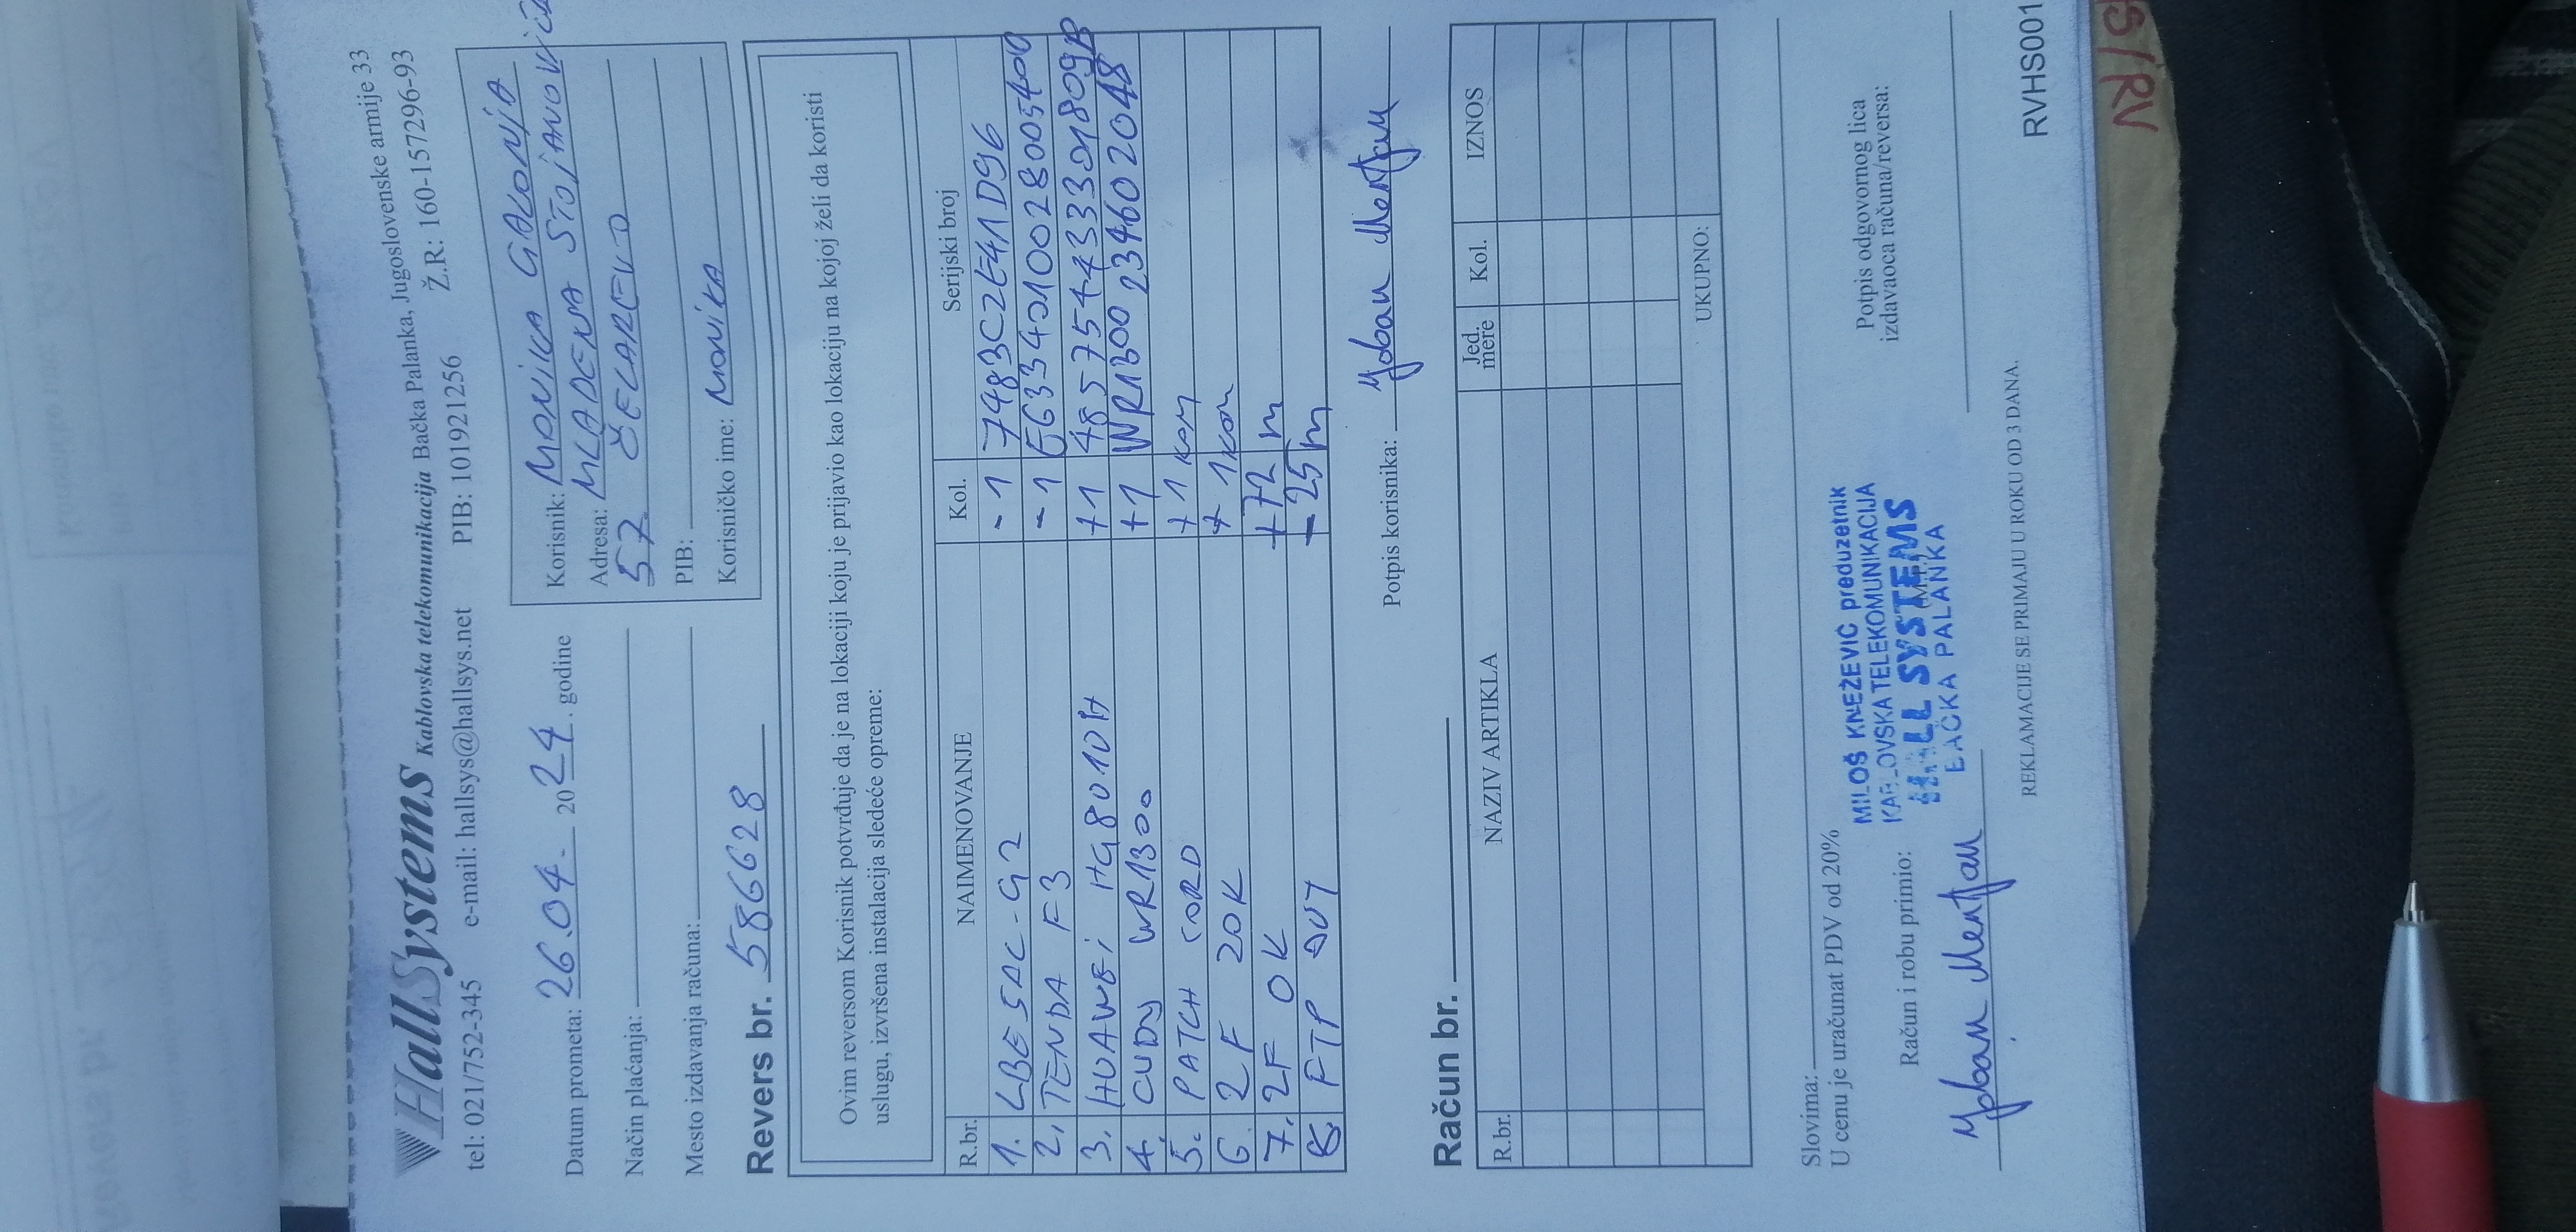 HallSystems Kablovska telekomunikacija Bačka Palanka, Jugoslovenske armije 33
tel: 021/752-345 e-mail: hallsys@hallsys.net PIB: 101921256 Ž.R: 160-157296-93
Datum prometa: 26.04. 2024. godine
Način plaćanja:
Mesto izdavanja računa:
Korisnik: MONIKA GALONJA
Adresa: MLADENA STOJANOVIĆA
57 ČELAREVO
PIB:
Korisničko ime: MONIKA
Revers br. 586628
Ovim reversom Korisnik potvrđuje da je na lokaciji koju je prijavio kao lokaciju na kojoj želi da koristi
uslugu, izvršena instalacija sledeće opreme:
R.br. NAIMENOVANJE Kol. Serijski broj
1. LBE 5AC-G2 -1 7483C2E41D96
2. TENDA F3 -1 E6334010028005400
3. HUAWEi HG8010H +1 485754433301809B
4. CUDY WR1300 +1 WR1300 234602048
5. PATCH CORD +1 KOM
6. 2F 20K + 1KOM
7. 2F OK +72 m
8. FTP OUT - 25 m
Potpis korisnika:
Račun br.
R.br. NAZIV ARTIKLA Jed. mere Kol. IZNOS
UKUPNO:
Slovima:
U cenu je uračunat PDV od 20%
Račun i robu primio:
MILOŠ KNEŽEVIĆ preduzetnik
KABLOVSKA TELEKOMUNIKACIJA
HALL SYSTEMS
BAČKA PALANKA
Potpis odgovornog lica
izdavaoca računa/reversa:
REKLAMACIJE SE PRIMAJU U ROKU OD 3 DANA.
RVHS001